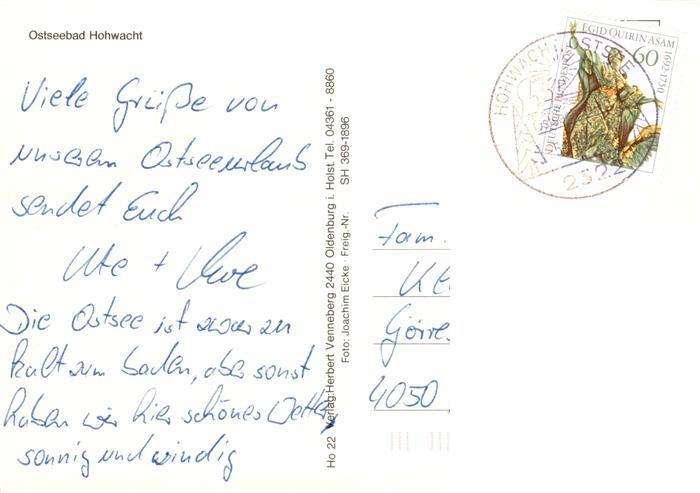 Ostseebad Hohwacht
Viele Grüße von
unserem Ostseeurlaub
sendet Euch
Ute + Uwe
Die Ostsee ist zwar zu
kalt zum baden, aber sonst
haben wir hier schönes Wetter,
sonnig und windig
Ho 22 Verlag: Herbert Venneberg 2440 Oldenburg i. Holst. Tel. 04361 - 8860
Foto: Joachim Eicke - Freig.-Nr. SH 369-1896
EGID QUIRIN ASAM
1692-1750
60
DEUTSCHE BUNDESPOST
HOHWACHT OSTSEE
2322
Fam.
Görres
4050